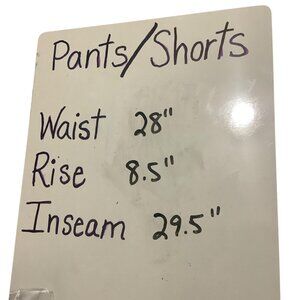 Pants/Shorts
Waist 28"
Rise 8.5"
Inseam 29.5"